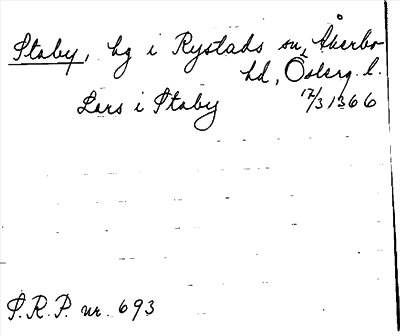 Staby, hg i Rystads sn, Åkerbo
hd, Österg. l.
Lars i Staby 17/3 1366
S.R.P. nr. 693